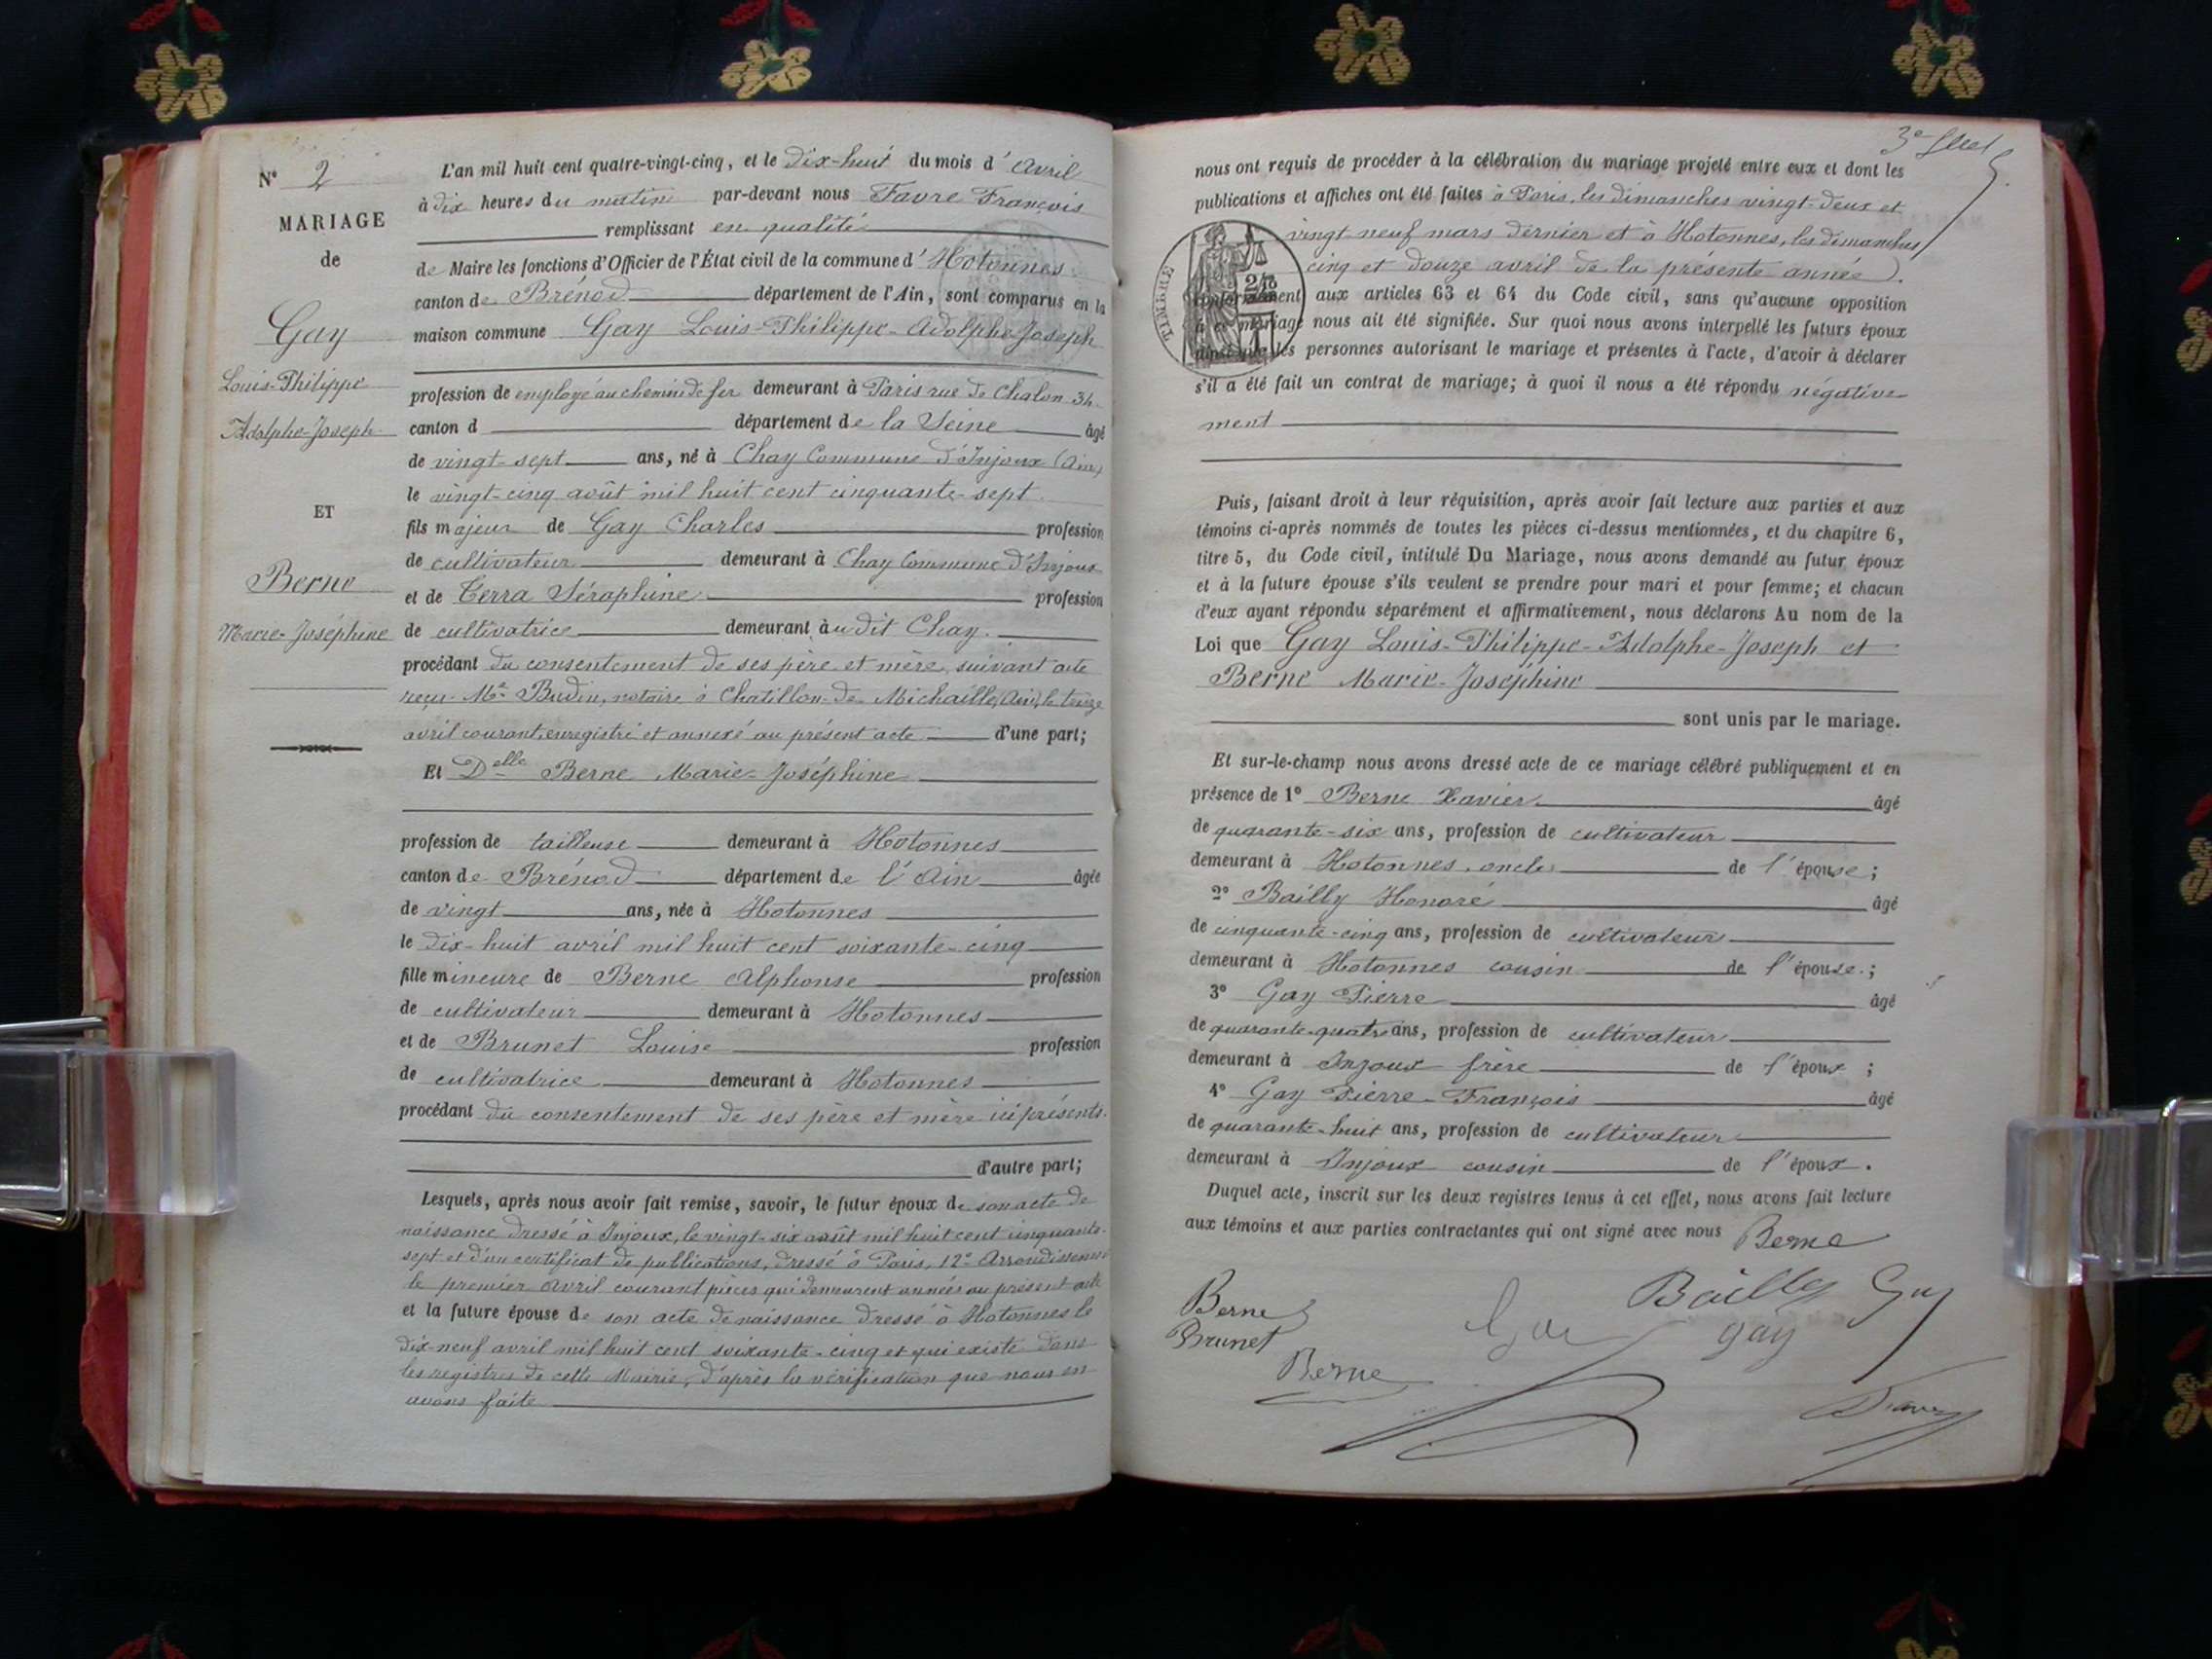 N° 2
MARIAGE
de
Gay
Louis-Philippe
Adolphe-Joseph
ET
Berne
Marie-Joséphine
L'an mil huit cent quatre-vingt-cinq, et le dix-huit du mois d'avril
à dix heures du matin par-devant nous Favre François
remplissant en qualité
de Maire les fonctions d'Officier de l'État civil de la commune d'Hotonnes
canton de Brénod département de l'Ain, sont comparus en la
maison commune Gay Louis-Philippe-Adolphe-Joseph
profession de employé au chemin de fer demeurant à Paris rue de Chalon 34
canton d département de la Seine âgé
de vingt-sept ans, né à Chay Commune d'Injoux (Ain)
le vingt-cinq août mil huit cent cinquante-sept
fils majeur de Gay Charles profession
de cultivateur demeurant à Chay Commune d'Injoux
et de Terra Séraphine profession
de cultivatrice demeurant audit Chay.
procédant du consentement de ses père et mère, suivant acte
reçu Me Budin, notaire à Chatillon-de-Michaille (Ain), le treize
avril courant, enregistré et annexé au présent acte d'une part;
Et Delle Berne Marie-Joséphine
profession de tailleuse demeurant à Hotonnes
canton de Brénod département de l'Ain âgée
de vingt ans, née à Hotonnes
le dix-huit avril mil huit cent soixante-cinq
fille mineure de Berne Alphonse profession
de cultivateur demeurant à Hotonnes
et de Brunet Louise profession
de cultivatrice demeurant à Hotonnes
procédant du consentement de ses père et mère ici présents.
d'autre part;
Lesquels, après nous avoir fait remise, savoir, le futur époux de son acte de
naissance dressé à Injoux, le vingt-six août mil huit cent cinquante-
sept et d'un certificat de publications, dressé à Paris, 12e Arrondissement
le premier avril courant pièces qui demeurent annexées au présent acte
et la future épouse de son acte de naissance dressé à Hotonnes le
dix-neuf avril mil huit cent soixante-cinq et qui existe dans
les registres de cette Mairie, d'après la vérification que nous en
avons faite
3e
nous ont requis de procéder à la célébration du mariage projeté entre eux et dont les
publications et affiches ont été faites à Paris, les dimanches vingt-deux et
vingt-neuf mars dernier et à Hotonnes, les dimanches
cinq et douze avril de la présente année).
TIMBRE
conformément aux articles 63 et 64 du Code civil, sans qu'aucune opposition
à ce mariage nous ait été signifiée. Sur quoi nous avons interpellé les futurs époux
ainsi que les personnes autorisant le mariage et présentes à l'acte, d'avoir à déclarer
s'il a été fait un contrat de mariage; à quoi il nous a été répondu négative-
ment
Puis, faisant droit à leur réquisition, après avoir fait lecture aux parties et aux
témoins ci-après nommés de toutes les pièces ci-dessus mentionnées, et du chapitre 6,
titre 5, du Code civil, intitulé Du Mariage, nous avons demandé au futur époux
et à la future épouse s'ils veulent se prendre pour mari et pour femme; et chacun
d'eux ayant répondu séparément et affirmativement, nous déclarons Au nom de la
Loi que Gay Louis-Philippe-Adolphe-Joseph et
Berne Marie-Joséphine
sont unis par le mariage.
Et sur-le-champ nous avons dressé acte de ce mariage célébré publiquement et en
présence de 1° Berne Xavier âgé
de quarante-six ans, profession de cultivateur
demeurant à Hotonnes, oncle de l'épouse;
2° Bailly Honoré âgé
de cinquante-cinq ans, profession de cultivateur
demeurant à Hotonnes cousin de l'épouse;
3° Gay Pierre âgé
de quarante-quatre ans, profession de cultivateur
demeurant à Injoux frère de l'époux ;
4° Gay Pierre-François âgé
de quarante-huit ans, profession de cultivateur
demeurant à Injoux cousin de l'époux.
Duquel acte, inscrit sur les deux registres tenus à cet effet, nous avons fait lecture
aux témoins et aux parties contractantes qui ont signé avec nous Berne
Berne Bailly Gay
Brunet Gay gay
Berne Favre